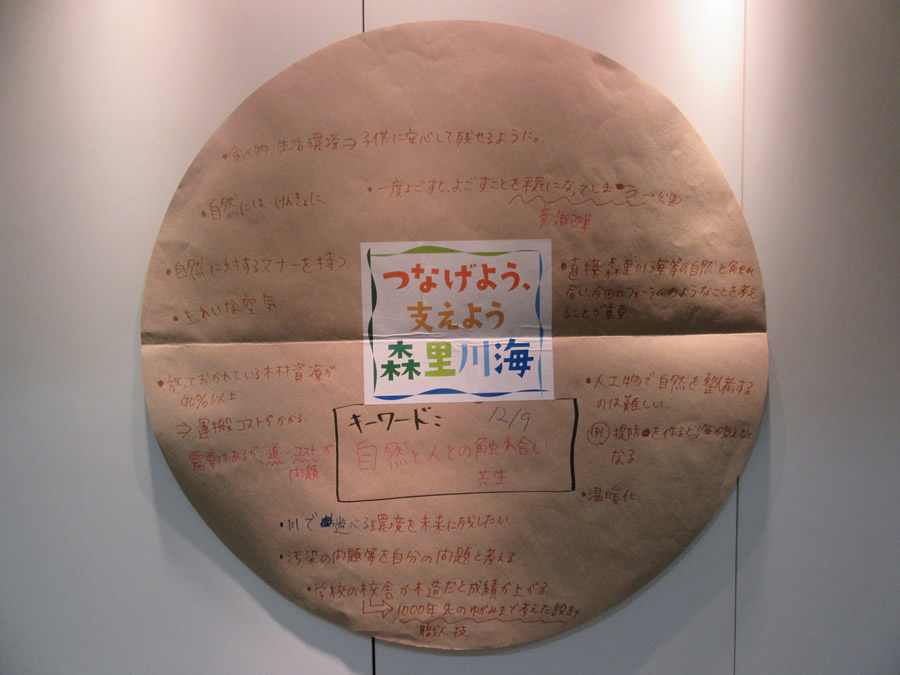 ・食べ物、生活環境⇒子供に安心して残せるように。
・一度よごすと、よごすことを平気になってしまう→
・自然には けんきょに、
意識改革
・自然に対するマナーを持つ
・きれいな空気
・直接森里川海等の自然と触れ
合い、今回のフォーラムのようなことを考え
ることが重要
つなげよう、
支えよう
森里川海
・放っておかれている木材資源が
90%以上
⇒運搬コストがかかる
需要はあるが、道、コストが
問題
キーワード:
12/9
自然と人との触れ合い
共生
・人工物で自然を整備する
のは難しい
例 堤防を作ると海が見えなく
なる
・温暖化
・川で遊べる環境を未来に残したい
・汚染の問題等を自分の問題と考える
・学校の校舎が木造だと成績が上がる
→1000年先のゆがみまで考えた設計
職人技